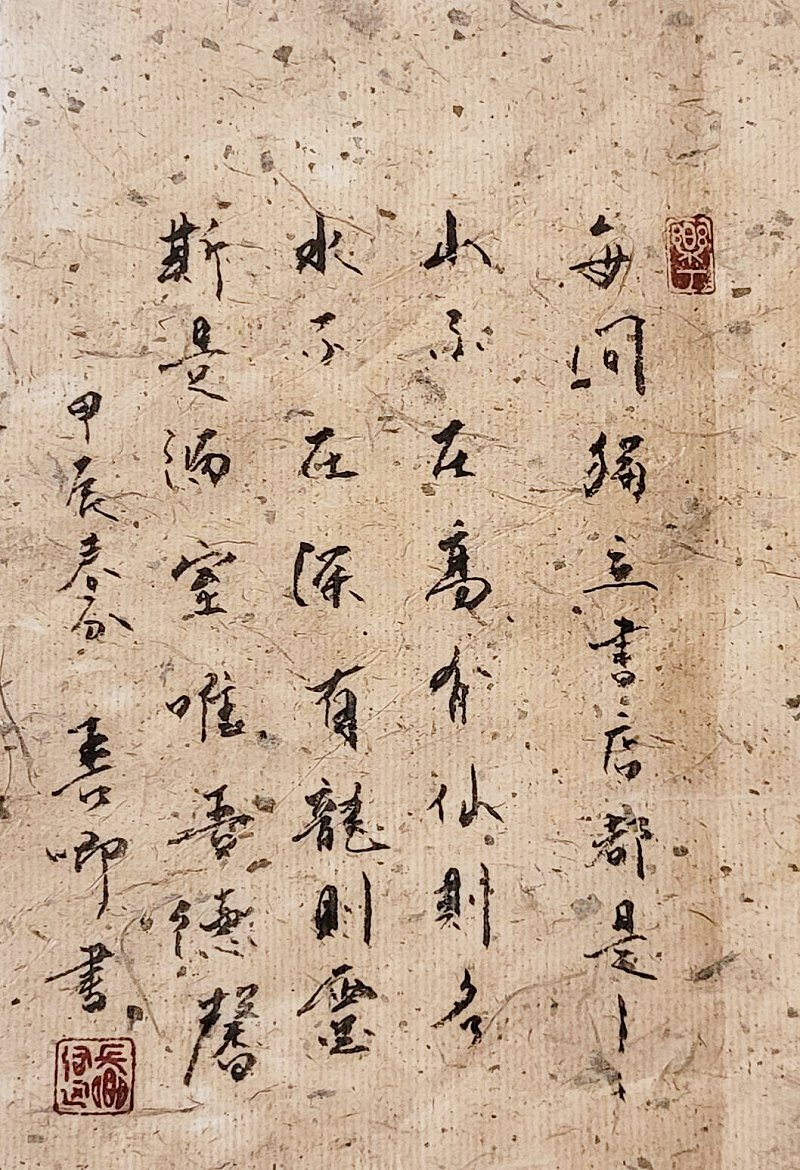 每間獨立書店都是——
山不在高有仙則名
水不在深有龍則靈
斯是陋室唯吾德馨
甲辰春分 善卿書